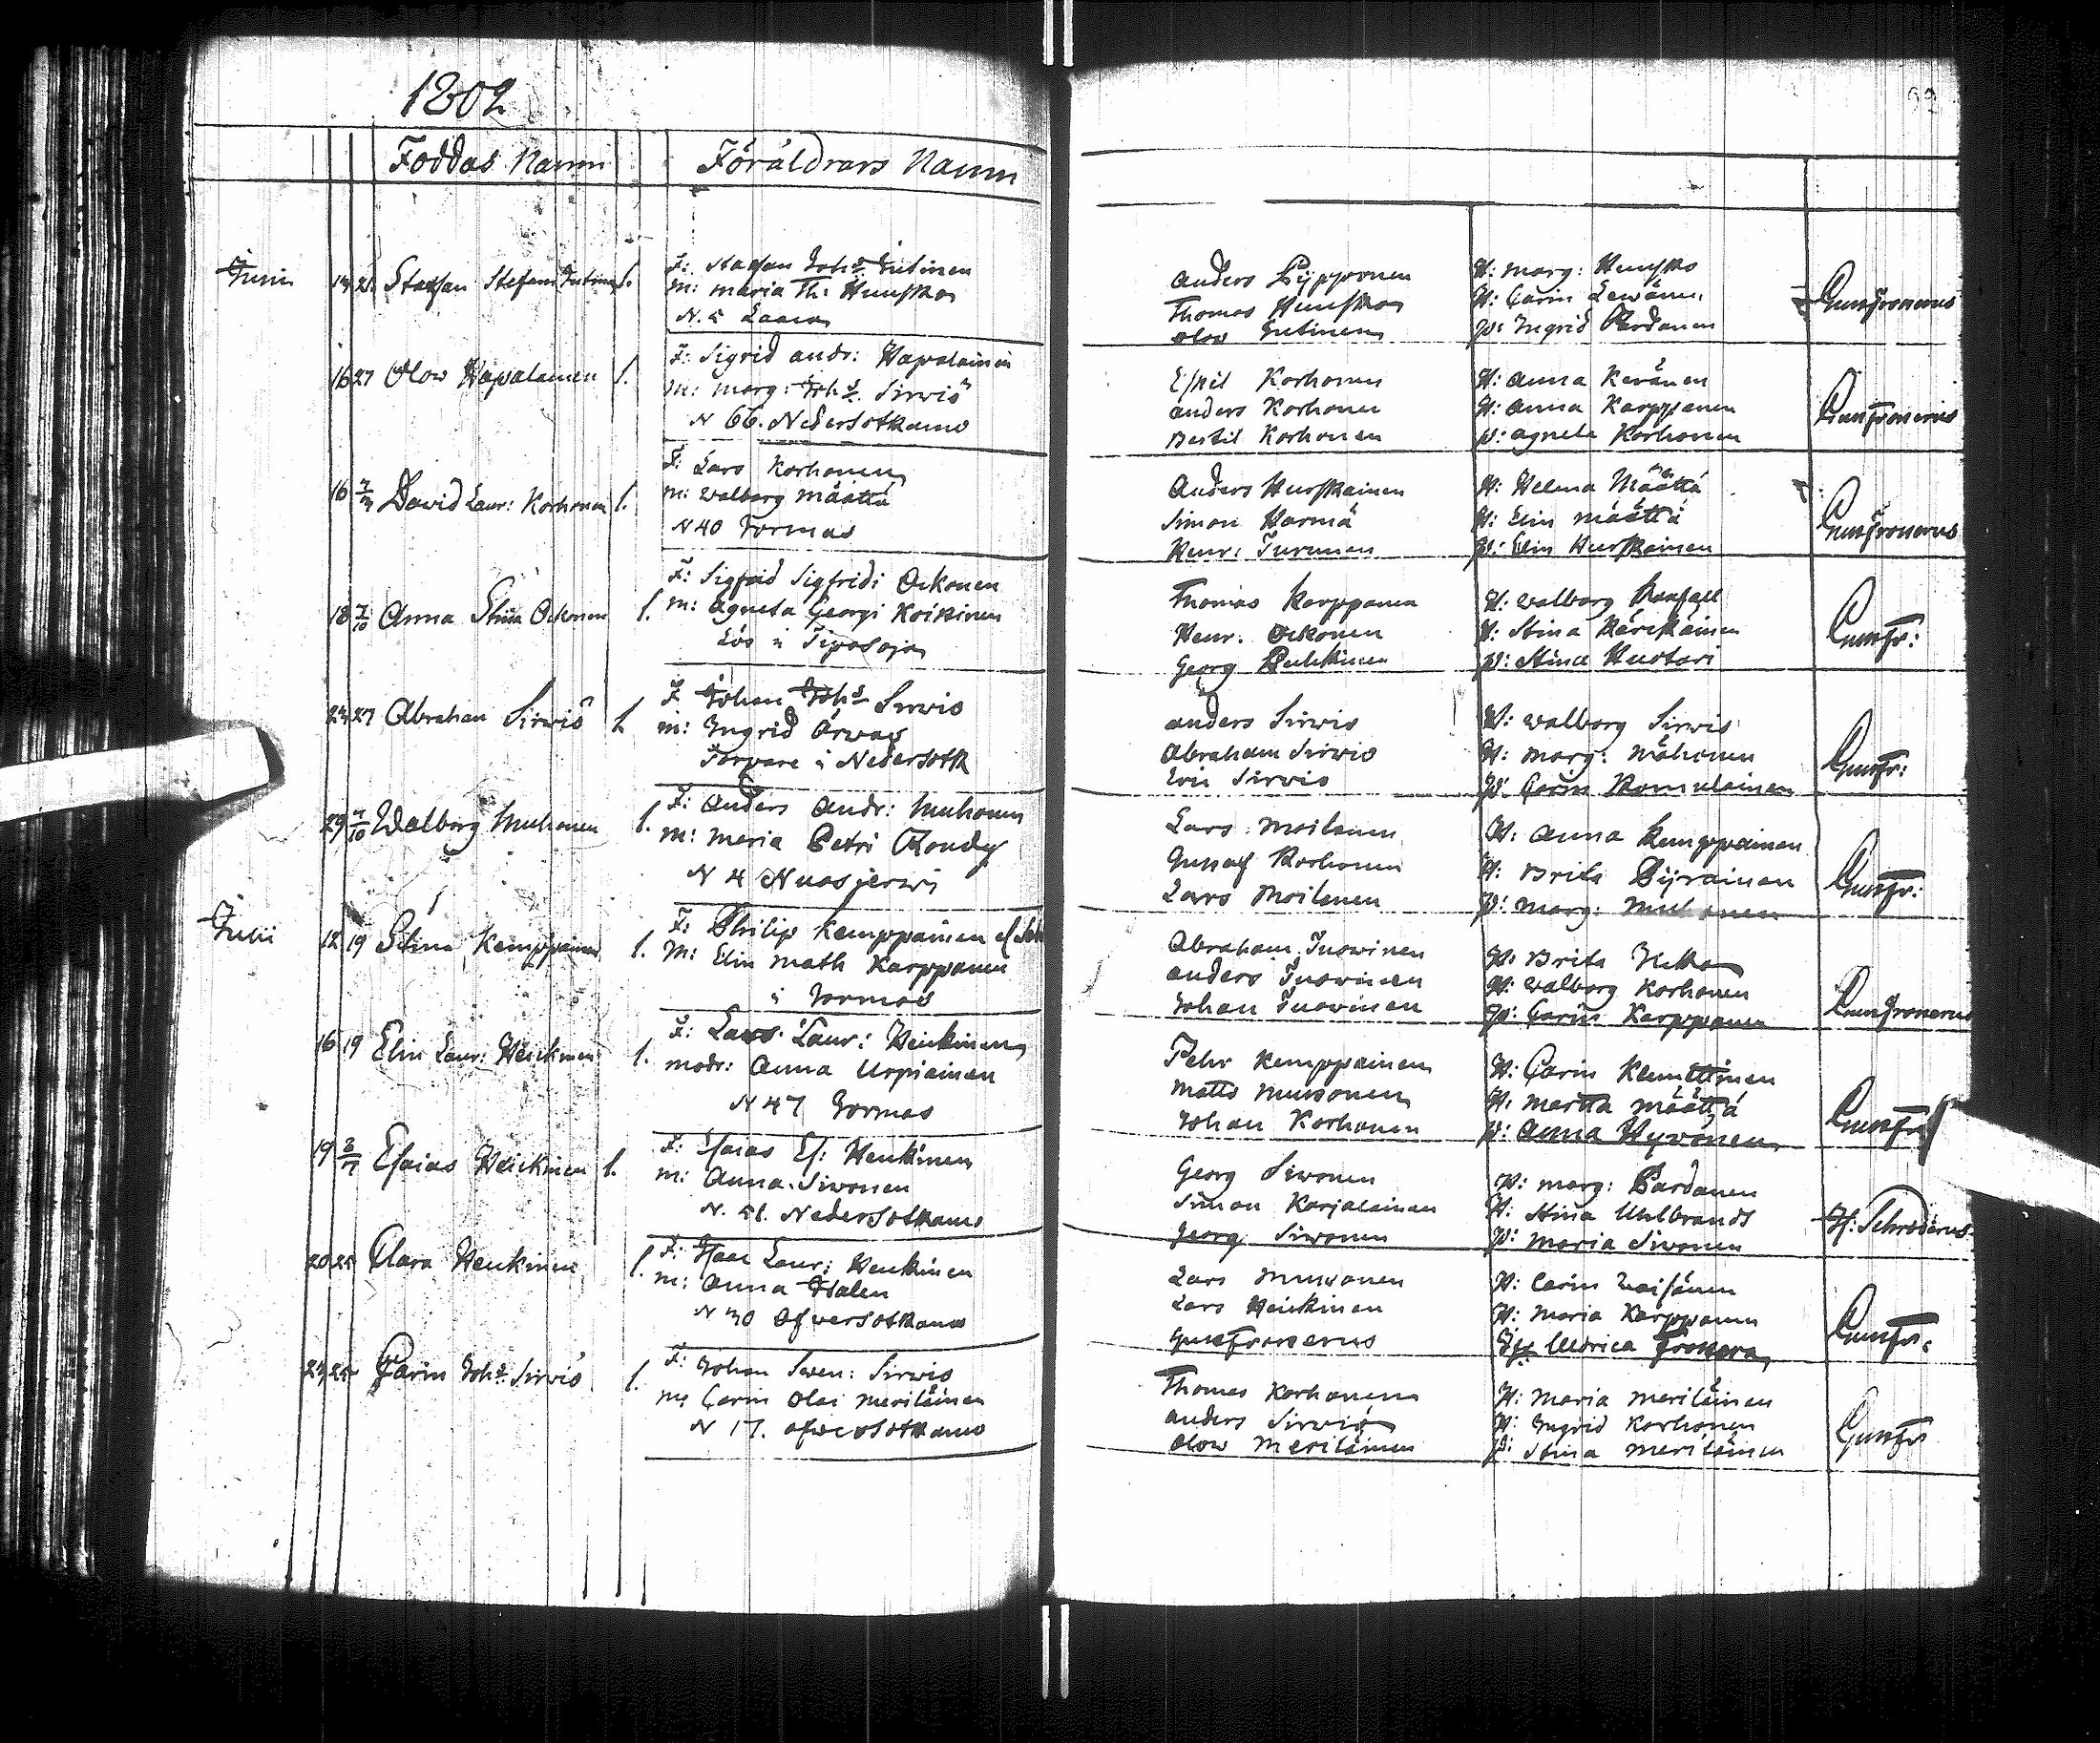 1802
Foddas Namn
Föräldrars Namn
Junii
14 21. Staffan Stefani
F: Staffan Joh:s Entinen
M: Maria Th:
N. 5
Anders Pyppönen
Thomas
Olow Entinen
H: Marg:
H: Carin Lewänen
P: Ingrid Pardanen
16 27 Olow Hapalainen l.
F: Sigrid Andr: Hapalainen
M: Marg: Joh:s Sirwiö
N 66. Nedersotkamo
Eskil Korhonen
Anders Korhonen
Bertil Korhonen
H: Anna Keränen
H: Anna Karppanen
P: Agneta Korhonen
16 David Laur: Korhonen l.
F: Lars Korhonen
M: Walborg Määttä
N 40 Jormas
Anders Hurskainen
Simon Harmä
Henr: Turunen
H: Helena Määttä
H: Elin Määttä
P: Elin Hurskainen
18 7/10 Anna Stina Ockonen l.
F: Sigfrid Sigfridi Ockonen
M: Agneta Georgi Koikinen
Lös i Tipasoja
Thomas Karppanen
Henr. Ockonen
Georg
H: Walborg
H: Stina Kärckäinen
P: Stina Huotari
Gunfr:
24 27 Abraham Sirwiö l.
F Johan Joh:s Sirwiö
M: Ingrid Örwas
Torpare i Nedersotk
Anders Sirwiö
Abraham Sirwiö
Eric Sirwiö
H: Walborg Sirwiö
H: Marg: Mähönen
P: Carin Romulainen
Gunfr:
29 7/10 Walborg Muhonen l.
F: Anders Andr: Muhonen
M: Maria Petri
N 4 Nuasjerwi
Lars Moilanen
Gustaf Korhonen
Lars Moilanen
H: Anna Kemppainen
H: Brita Pijrainen
P: Marg: Muhonen
Gunfr:
Julii
12 19 Stina Kemppainen l.
F: Philip Kemppainen
M: Elin Math Karppanen
i Jormas
Abraham Tuowinen
Anders Tuowinen
Johan Tuowinen
H: Brita
H: Walborg Korhonen
P: Carin Karppanen
16 19 Elin Laur: Heickinen l.
F: Lars Laur: Heickinen
Modr: Anna Urpiainen
N 47 Jormas
Pehr Kemppainen
Matts Mustonen
Johan Korhonen
H: Carin Klemettinen
H: Martha Määttä
P: Anna Hyvönen
Gunfr
19 2/7 Esaias Heickinen l.
F: Esaias Es: Heickinen
M: Anna Siwonen
N. 51. Nedersotkamo
Georg Siwonen
Simon Karjalainen
Georg Siwonen
H: Marg: Pardanen
H: Stina Uhlbrandt
P: Maria Siwonen
H: Schroderus
20 25 Clara Heickinen l.
F: Isaac Laur: Heickinen
M: Anna Halen
N 30 Ofversotkamo
Lars Mustonen
Lars Heickinen
Gust Fronerus
H: Carin Waisänen
H: Maria Karppanen
Ulrica Fronera
Gunfr:
24 25 Carin Joh:s Sirwiö l.
F: Johan Swen: Sirwiö
M: Carin Olai Meriläinen
N 17. Ofwersotkamo
Thomas Korhonen
Anders Sirwiö
Olow Meriläinen
H: Maria Meriläinen
H: Ingrid Korhonen
P: Stina Meriläinen
Gunfr